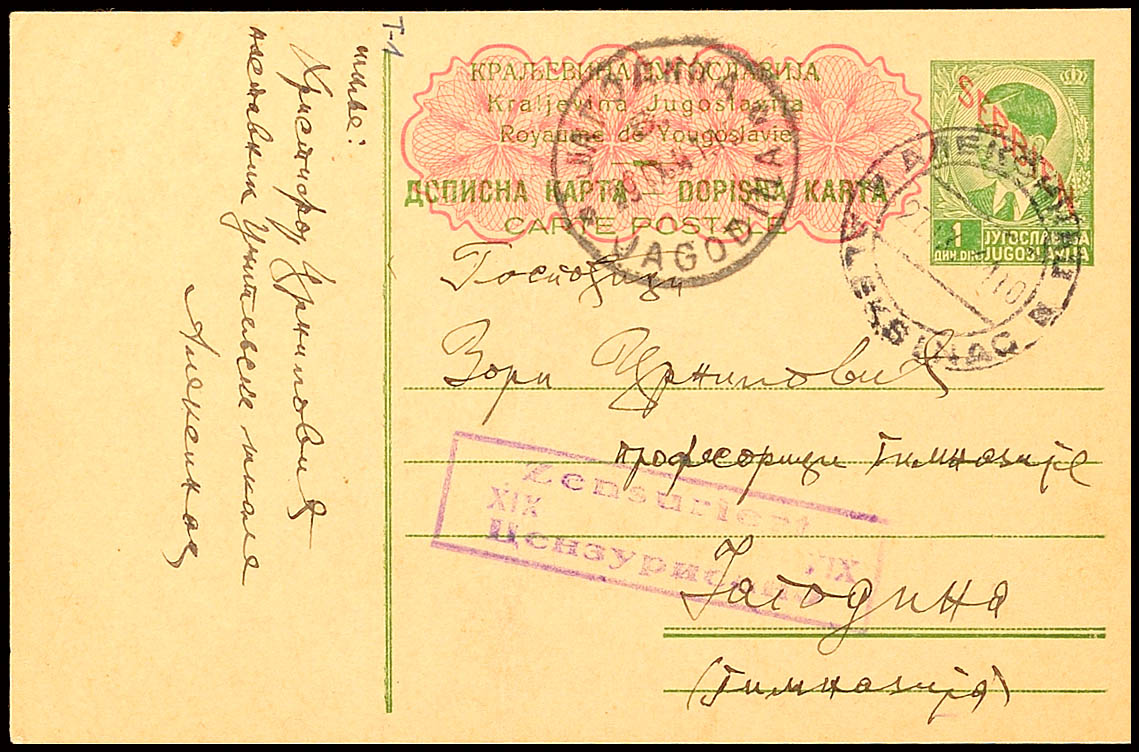 Т-1
КРАЉЕВИНА ЈУГОСЛАВИЈА
Kraljevina Jugoslavija
Royaume de Yougoslavie
ДОПИСНА КАРТА – DOPISNA KARTA
CARTE POSTALE
SERBIEN
1
ДИН. DIN
ЈУГОСЛАВИЈА
JUGOSLAVIJA
ЈАГОДИНА
JAGODINA
АЛЕКСИНАЦ
ALEKSINAC
Госпођици
Зори Црниловић
професорици Гимназије
Јагодина
(Гимназија)
Zensuriert
XIX
Цензурисано
XIX
пише:
Христифор Црниловић
наставник Учитељске школе
Алексинац